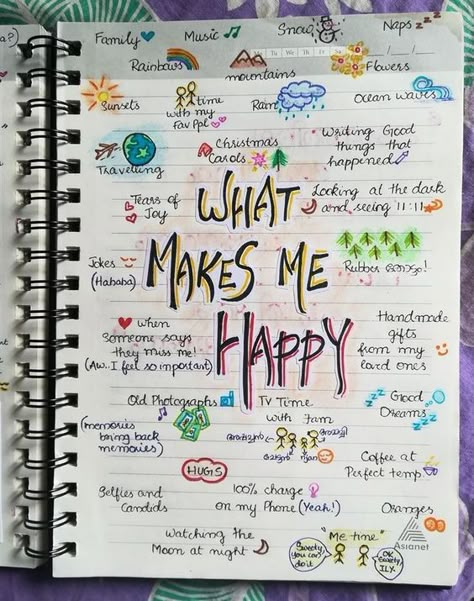 Family
Music
Snow
Naps zzz
Rainbows
Mo Tu We Th Fr Sa Su
mountains
Flowers
Sunsets
time
with my
Fav ppl
Rain
Ocean waves
Travelling
Christmas
Carols
Writing Good
things that
happened
Tears of
Joy
Looking at the dark
and seeing 11:11
WHAT
MAKES ME
HAPPY
Jokes
(Hahaha)
Rubber തോട്ടം!
When
someone says
they miss me!
(Aw.. I feel so important)
Handmade
gifts
from my
loved ones
Old Photographs
(memories
bring back
memories)
TV Time
with Fam
ഞാൻ
zzz Good
Dreams zzz
HUGS
Coffee at
Perfect temp.
Selfies and
Candids
100% charge
on my Phone (Yeah!)
Oranges
Watching the
Moon at night
"Me time"
Sweety,
You can
do it
OK
Sweety,
ILY.
Asianet